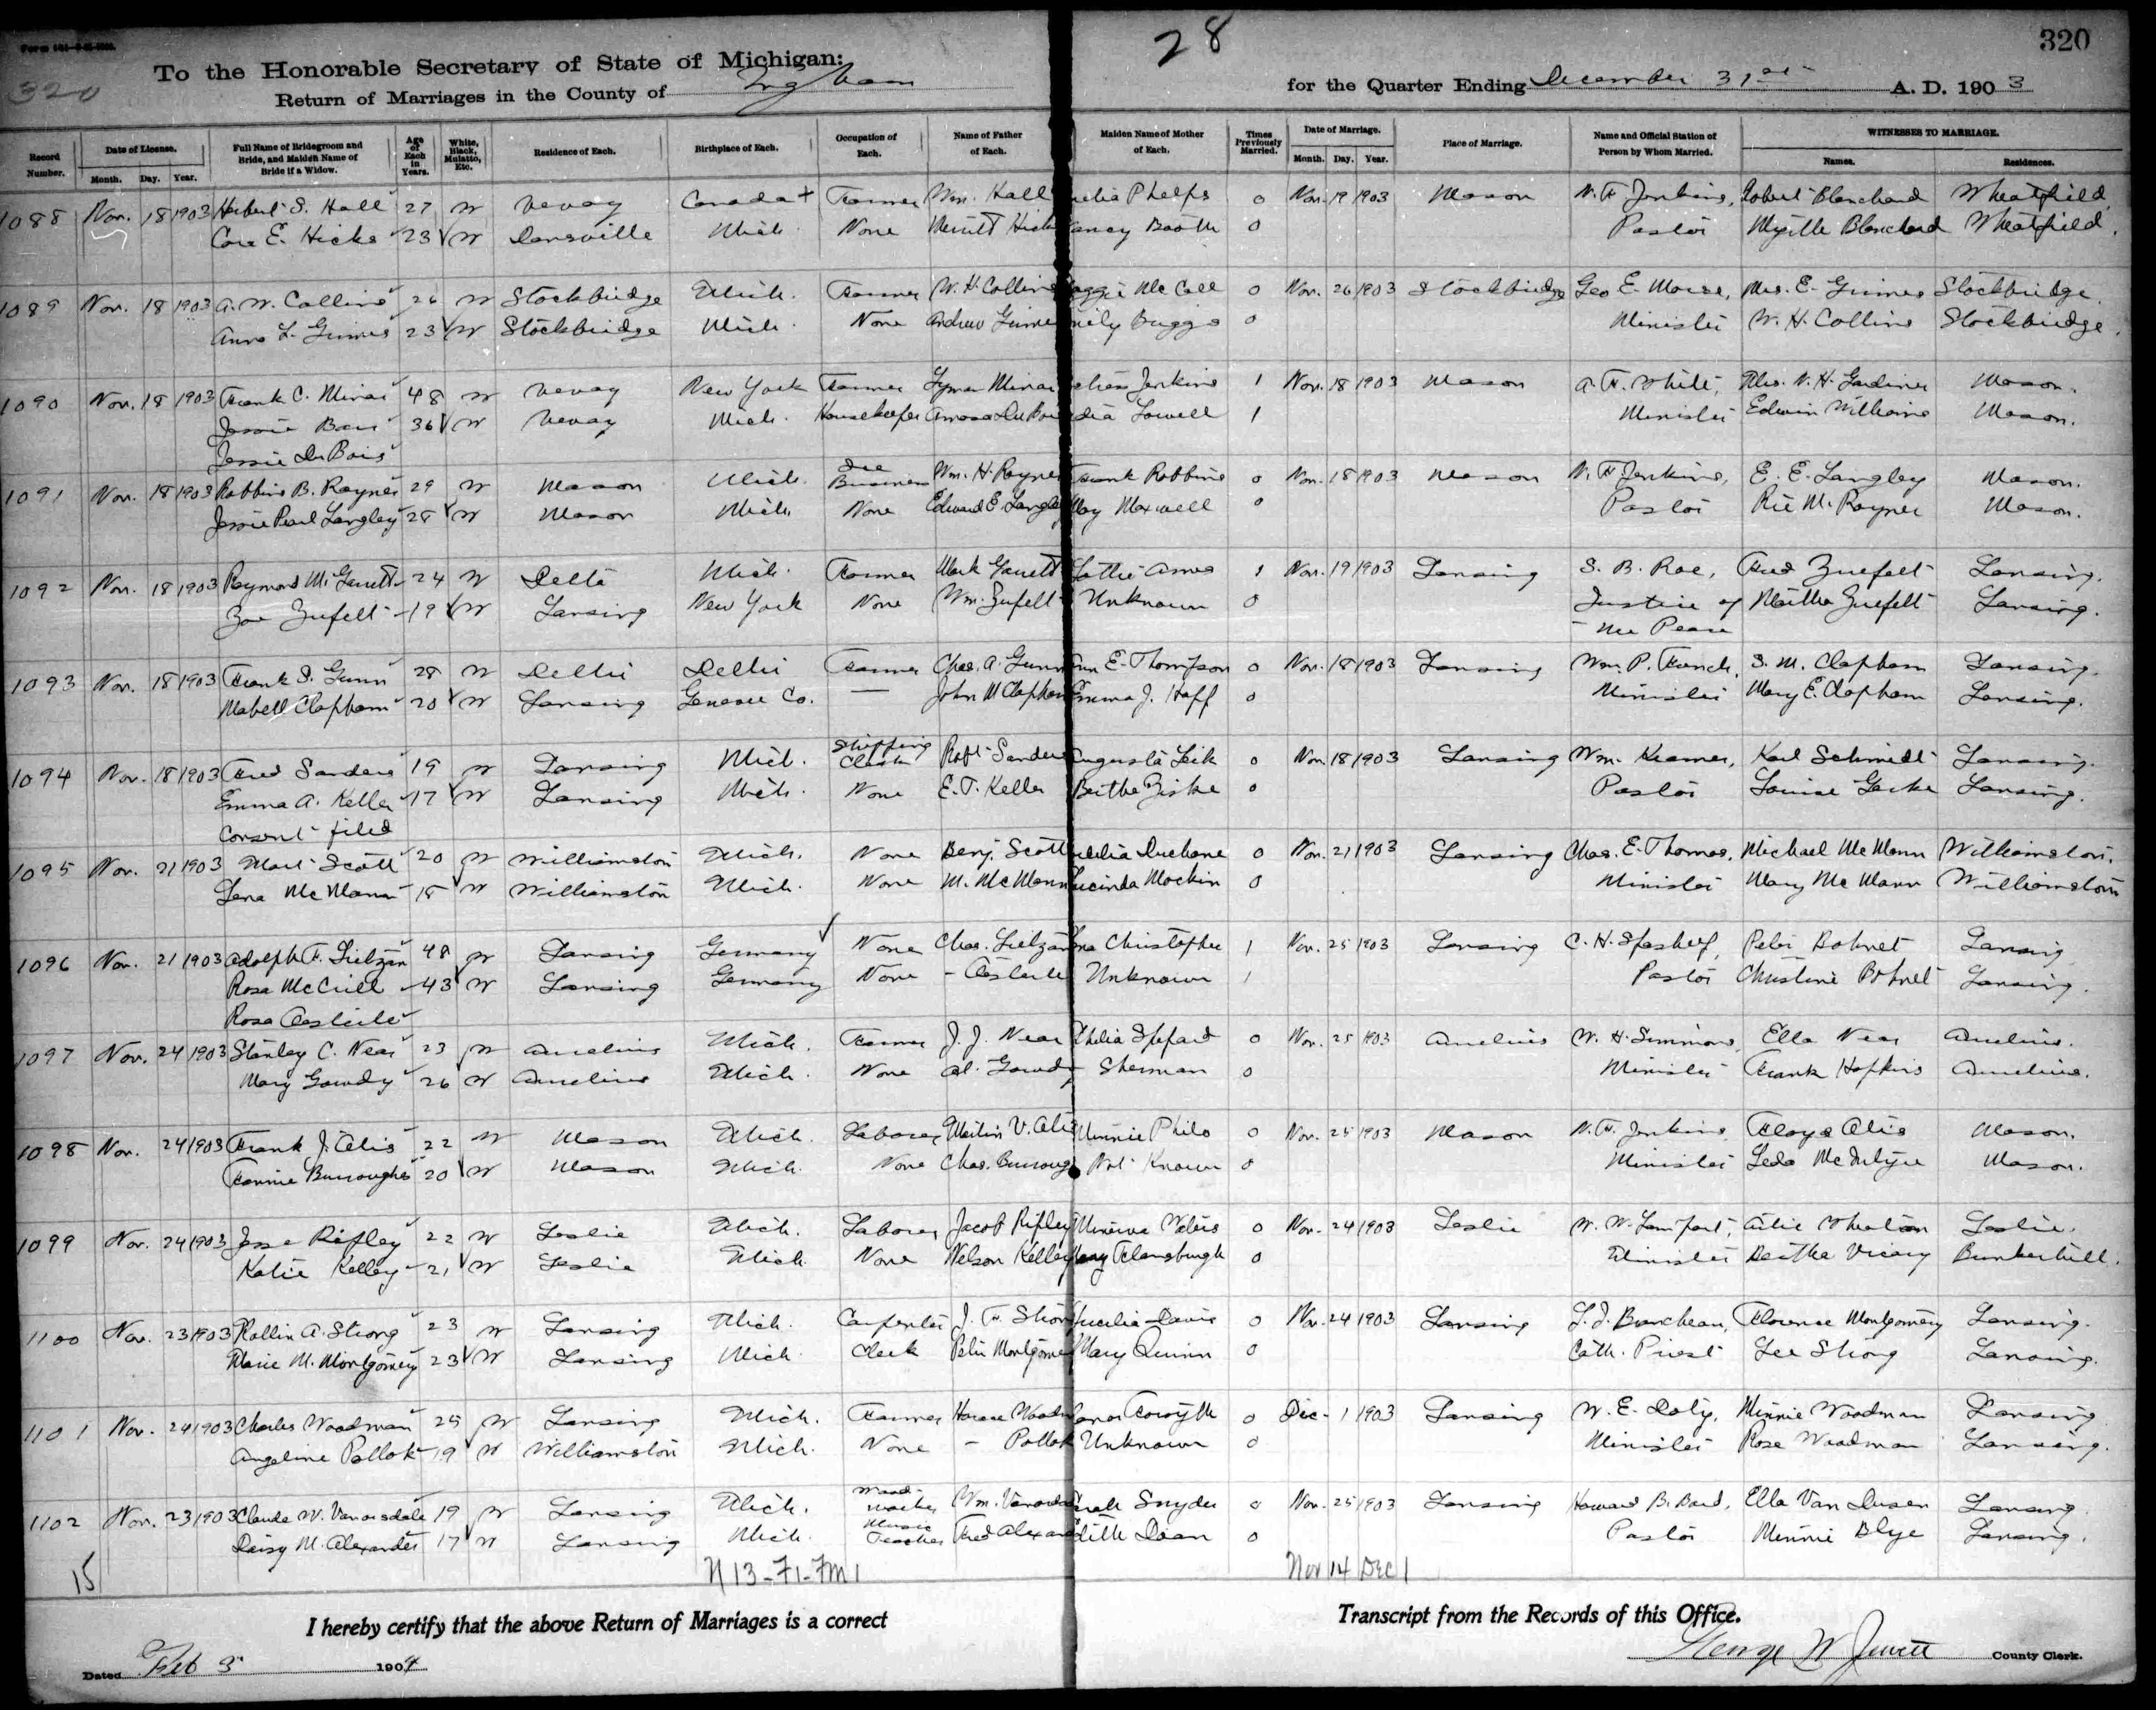 28
320
To the Honorable Secretary of State of Michigan:
320
Return of Marriages in the County of Ingham for the Quarter Ending December 31st A. D. 1903
Record Number. Date of License. Month. Day. Year. Full Name of Bridegroom and Bride, and Maiden Name of Bride if a Widow. Age of Each in Years. White, Black, Mulatto, Etc. Residence of Each. Birthplace of Each. Occupation of Each. Name of Father of Each. Maiden Name of Mother of Each. Times Previously Married. Date of Marriage. Month. Day. Year. Place of Marriage. Name and Official Station of Person by Whom Married. WITNESSES TO MARRIAGE. Names. Residences.
1088 Nov. 18 1903 Herbert S. Hall 27 W Vevay Canada + Farmer Wm. Hall elia Phelps 0 Nov. 19 1903 Mason N. F. Jenkins, Robert Blanchard Wheatfield
Cora E. Hicks 23 W Dansville Mich. None Merritt Hick ancy Booth 0 Pastor Myrtle Blanchard Wheatfield.
1089 Nov. 18 1903 A. W. Collins 26 W Stockbridge Mich. Farmer W. H. Collins aggie McCall 0 Nov. 26 1903 Stockbridge Geo E. Morse, Mrs. E. Grimes Stockbridge.
Anna L. Grimes 23 W Stockbridge Mich. None Andrew Grime mily Buggs 0 Minister W. H. Collins Stockbridge.
1090 Nov. 18 1903 Frank C. Minar 48 W Vevay New York Farmer Lyman Minar Jenkins 1 Nov. 18 1903 Mason A. F. White, Mrs. N. H. Gardiner Mason.
Jessie 36 W Vevay Mich. Housekeeper Amasa DuBoi dia Lowell 1 Minister Edwin Williams Mason.
Jessie DuBois
1091 Nov. 18 1903 Robbins B. Rayner 29 W Mason Mich. Ice Business Wm. H. Rayne Frank Robbins 0 Nov. 18 1903 Mason N. F. Jenkins, E. E. Langley Mason.
Jessie Pearl Langley 28 W Mason Mich. None Edward E. Langley May Maxwell 0 Pastor Rie M. Rayner Mason.
1092 Nov. 18 1903 Raymond M. Garrett 24 W Delta Mich. Farmer Mark Garrett Lottie Ames 1 Nov. 19 1903 Lansing S. B. Roe, Fred Zuefelt Lansing.
Zoe Zufelt 19 W Lansing New York None Wm. Zufelt Unknown 0 Justice of Martha Zuefelt Lansing.
the Peace
1093 Nov. 18 1903 Frank S. Gunn 28 W Delhi Delhi Farmer Chas. A. Gunn Ann E. Thompson 0 Nov. 18 1903 Lansing Wm. P. French, S. M. Clapham Lansing.
Mabell Clapham 20 W Lansing Genesee Co. — John M Clapham Emma J. Haff 0 Minister Mary E. Clapham Lansing.
1094 Nov. 18 1903 Fred Sanders 19 W Lansing Mich. Shipping Clerk Robt. Sander Augusta Leik 0 Nov. 18 1903 Lansing Wm. Kramer, Karl Schmidt Lansing.
Emma A. Keller 17 W Lansing Mich. None E. T. Keller Bertha Ziske 0 Pastor Louise Lansing.
Consent filed
1095 Nov. 21 1903 Mart Scott 20 W Williamston Mich. None Benj. Scott 0 Nov. 21 1903 Lansing Chas. E. Thomas, Michael McMann Williamston.
Lena McMann 18 W Williamston Mich. None M. McMann Lucinda Mackin 0 Minister Mary McMann Williamston
1096 Nov. 21 1903 Adolph F. Lietzan 48 W Lansing Germany None Chas. Lietzan na Christopher 1 Nov. 25 1903 Lansing C. H. Peter Bohnet Lansing
Rosa McCrill 43 W Lansing Germany None - Oesterle Unknown 1 Pastor Christine Bohnet Lansing.
Rosa Oesterle
1097 Nov. 24 1903 Stanley C. Near 23 W Aurelius Mich. Farmer J. J. Near Sheffard 0 Nov. 25 1903 Aurelius W. H. Simmons, Ella Near Aurelius.
Mary Gowdy 26 W Aurelius Mich. None Al. Gowdy Sherman 0 Minister Frank Hopkins Aurelius.
1098 Nov. 24 1903 Frank J. Otis 22 W Mason Mich. Laborer Martin V. Otis Minnie Philo 0 Nov. 25 1903 Mason N. F. Jenkins Floyd Otis Mason.
Fannie Burroughs 20 W Mason Mich. None Chas. Burroug Not Known 0 Minister Leda McIntyre Mason.
1099 Nov. 24 1903 Jesse Ripley 22 W Leslie Mich. Laborer Jacob Ripley Minerva Waters 0 Nov. 24 1903 Leslie W. W. Lamport, Artie Wheaton Leslie.
Katie Kelley 21 W Leslie Mich. None Nelson Kelley Mary 0 Minister Bertha Vicary Bunkerhill.
1100 Nov. 23 1903 Rollin A. Strong 23 W Lansing Mich. Carpenter J. F. Stron Lucelia Davis 0 Nov. 24 1903 Lansing L. J. Brancheau, Florence Montgomery Lansing.
Marie M. Montgomery 23 W Lansing Mich. Clerk Peter Montgome Mary Quinn 0 Cath. Priest Lee Strong Lansing.
1101 Nov. 24 1903 Charles Woodman 25 W Lansing Mich. Farmer Horace Woodm Forsyth 0 Dec. 1 1903 Lansing W. E. Doty, Minnie Woodman Lansing
Angeline Pollok 19 W Williamston Mich. None - Pollok Unknown 0 Minister Rose Woodman Lansing.
1102 Nov. 23 1903 Claude W. Vanorsdale 19 W Lansing Mich. Wood-worker Wm. Vanorsda Snyder 0 Nov. 25 1903 Lansing Howard B. Bard, Ella Van Dusen Lansing.
Daisy M. Alexander 17 W Lansing Mich. Music Teacher Fred Alexand Edith Dean 0 Pastor Minnie Blye Lansing.
15 N 13-F1-Fm 1 Nov 14 Dec 1
I hereby certify that the above Return of Marriages is a correct Transcript from the Records of this Office.
Dated Feb 3 1904 George W Jewett County Clerk.